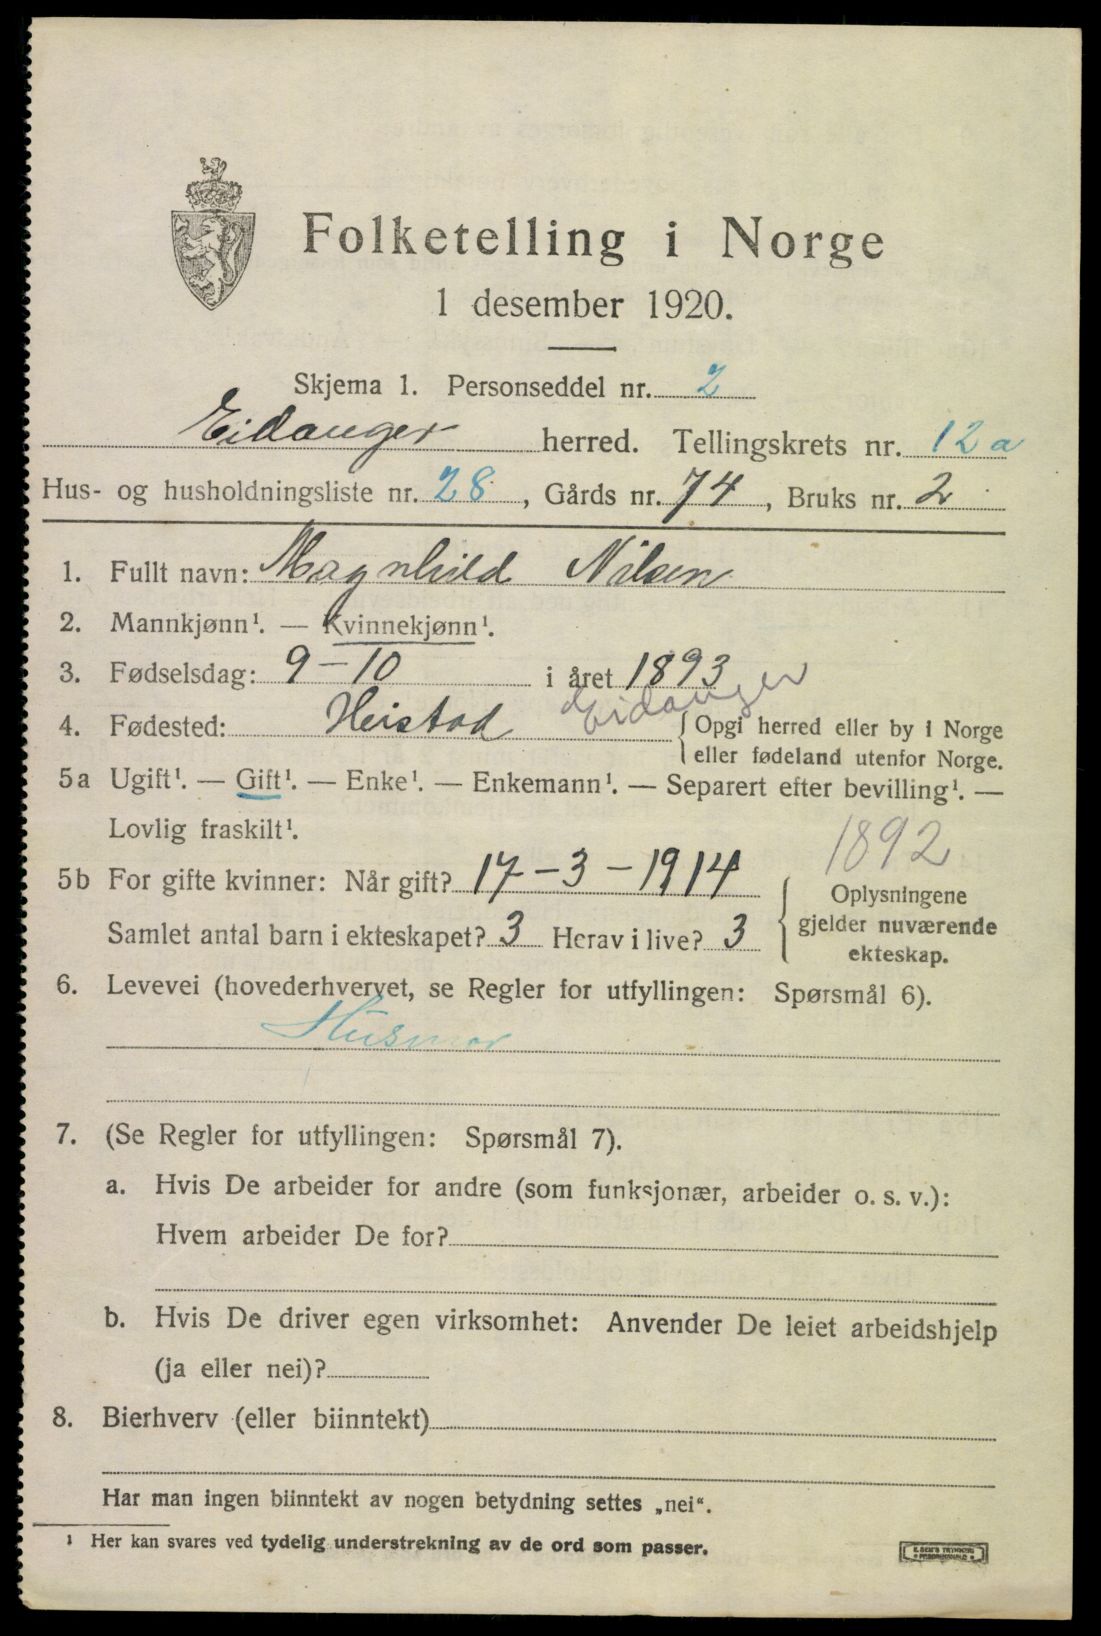 Folketelling i Norge
1 desember 1920.
Skjema 1. Personseddel nr. 2
Eidanger herred. Tellingskrets nr. 12 a
Hus- og husholdningsliste nr. 28, Gårds nr. 74, Bruks nr. 2
1. Fullt navn: Magnhild Nilsen
2. Mannkjønn¹. — Kvinnekjønn¹.
3. Fødselsdag: 9-10 i året 1893
4. Fødested: Heistad Eidanger
Opgi herred eller by i Norge
eller fødeland utenfor Norge.
5a Ugift¹. — Gift¹. — Enke¹. — Enkemann¹. — Separert efter bevilling¹. —
Lovlig fraskilt¹.
1892
5b For gifte kvinner: Når gift? 17-3-1914
Samlet antal barn i ekteskapet? 3 Herav i live? 3
Oplysningene
gjelder nuværende
ekteskap.
6. Levevei (hovederhvervet, se Regler for utfyllingen: Spørsmål 6).
Husmor
7. (Se Regler for utfyllingen: Spørsmål 7).
a. Hvis De arbeider for andre (som funksjonær, arbeider o. s. v.):
Hvem arbeider De for?
b. Hvis De driver egen virksomhet: Anvender De leiet arbeidshjelp
(ja eller nei)?
8. Bierhverv (eller biinntekt)
Har man ingen biinntekt av nogen betydning settes „nei“.
¹ Her kan svares ved tydelig understrekning av de ord som passer.